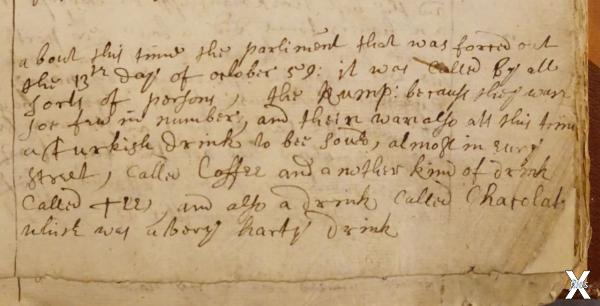 about this time the parliment that was forced out
the 13th day of october 59: it was Called by all
sorts of persons, the Rump: because they war
soe few in number, and their war also att this time
a turkish drink to bee sould, almost in eury
street, Called Coffee and another kind of drink
Called Tee, and also a drink Called Chacolat
which was a very harty drink
X